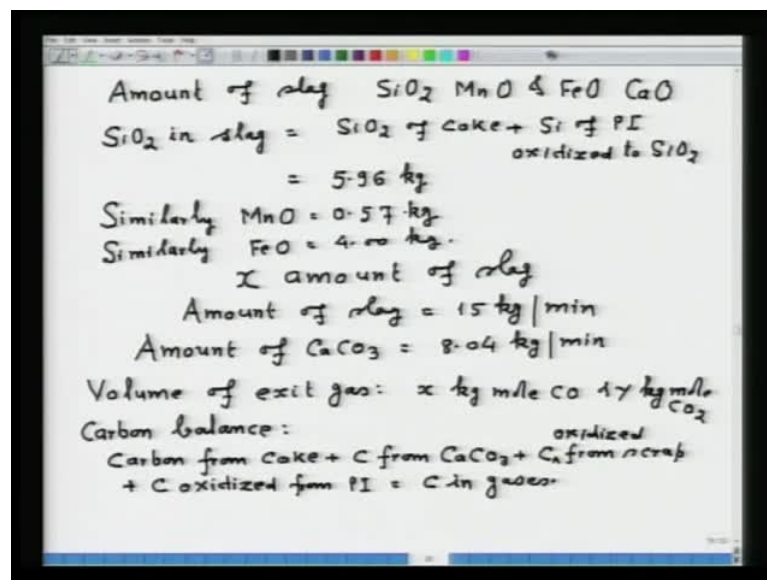 Amount of slag SiO2 MnO & FeO CaO
SiO2 in slag = SiO2 of coke + Si of PI
oxidized to SiO2
= 5.96 kg
Similarly MnO = 0.57 kg
Similarly FeO = 4.00 kg.
x amount of slag
Amount of slag = 15 kg/min
Amount of CaCO3 = 8.04 kg/min
Volume of exit gas: x kg mole CO & y kg mole CO2
Carbon balance:
oxidized
Carbon from coke + C from CaCO3 + C from scrap
+ C oxidized from PI = C in gases.